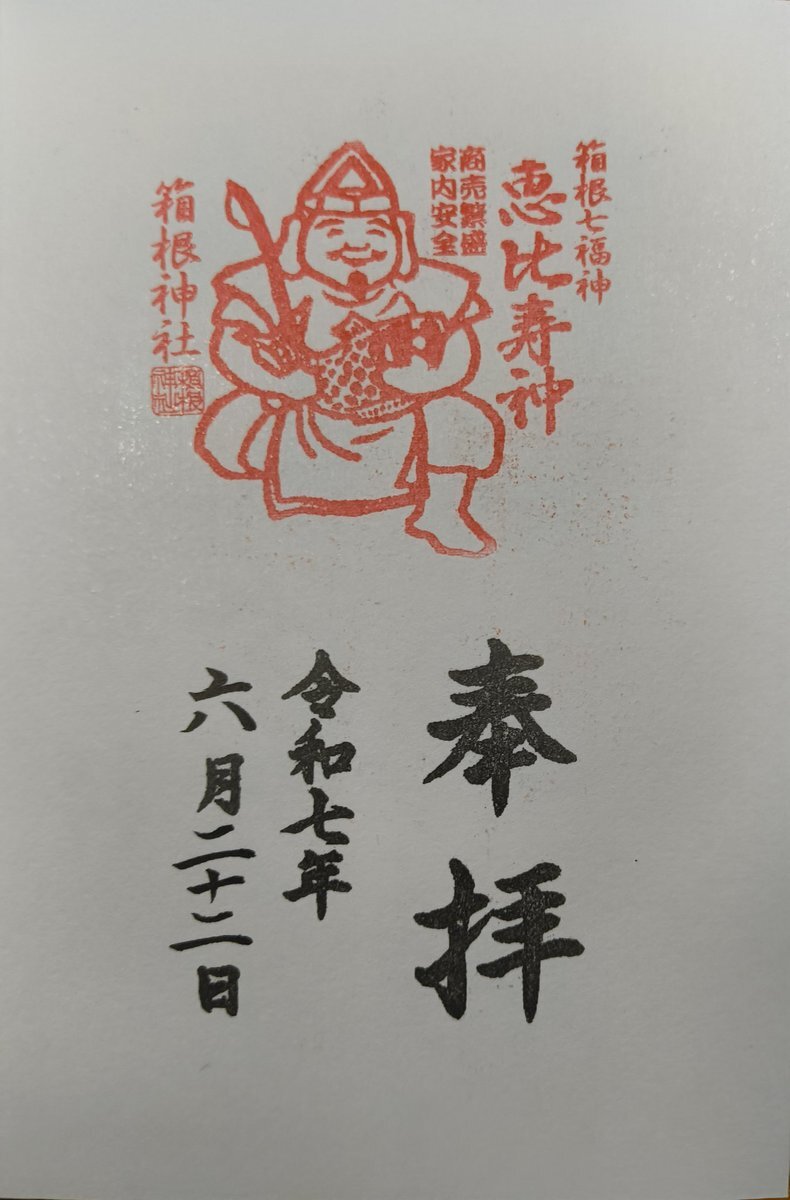 箱根七福神
恵比寿神
商売繁盛
家内安全
箱根神社
箱根
神社
奉拝
令和七年
六月二十二日